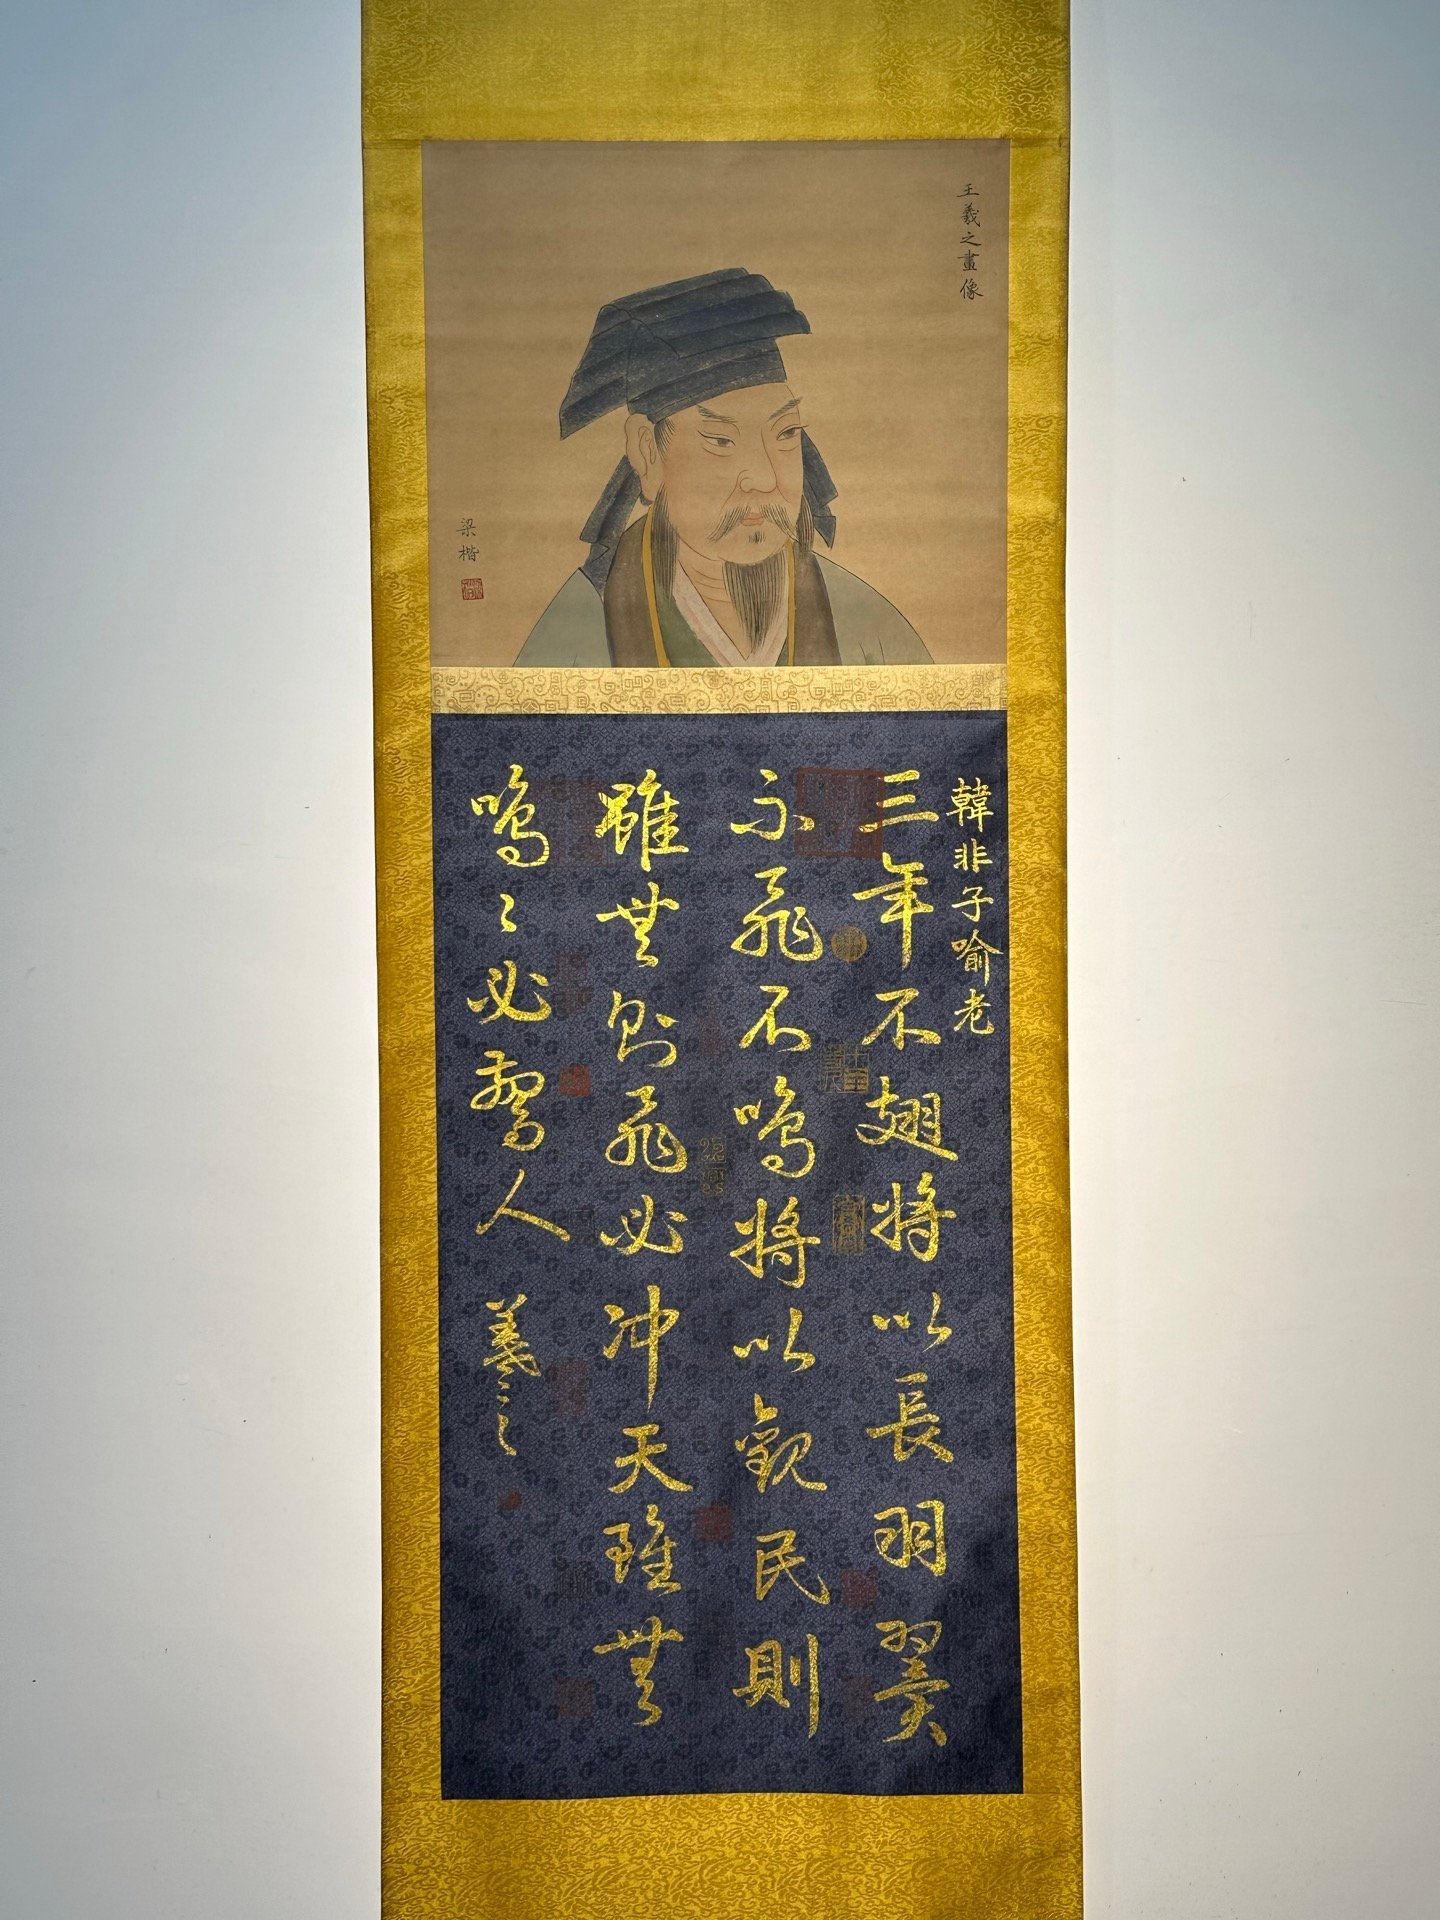 王羲之畫像
梁楷
韓非子喻老
三年不翅将以長羽翼
不飛不鳴将以觀民則
雖無則飛必冲天雖無
鳴〻必驚人
羲之